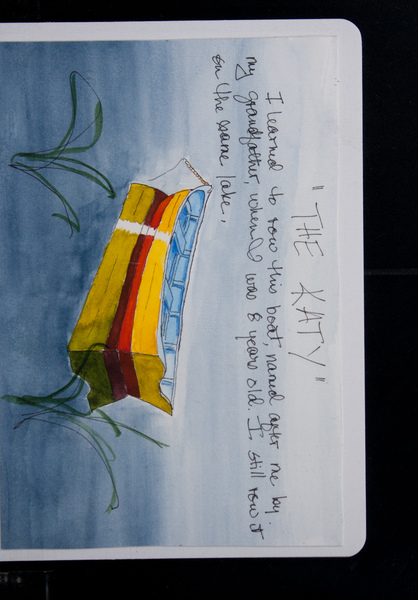 "THE KATY"
I learned to row this boat, named after me by
my grandfather, when I was 8 years old. I still row it
on the same lake.